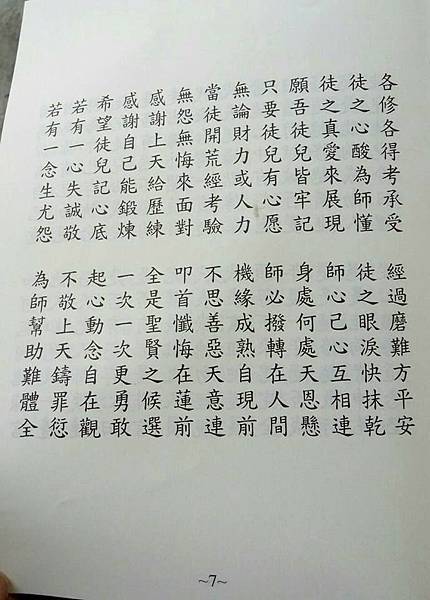 各修各得考承受　經過磨難方平安
徒之心酸為師懂　徒之眼淚快抹乾
徒之真愛來展現　師心己心互相連
願吾徒兒皆牢記　身處何處天恩懸
只要徒兒有心愿　師必撥轉在人間
無論財力或人力　機緣成熟自現前
當徒開荒經考驗　不思善惡天意連
無怨無悔來面對　叩首懺悔在蓮前
感謝上天給歷練　全是聖賢之候選
感謝自己能鍛煉　一次一次更勇敢
希望徒兒記心底　起心動念自在觀
若有一心失誠敬　不敬上天鑄罪愆
若有一念生尤怨　為師幫助難體全
~7~